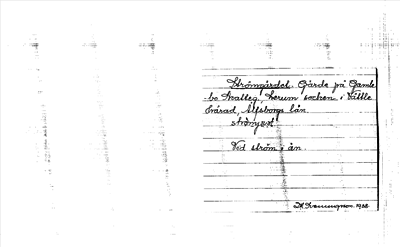 Strömgärdet. Gärde på Gamle-
bo Skatteg, Lerum socken i Vättle
härad, Älfsborgs län.
strömjɛʈ
Ved ström i ån.
1908